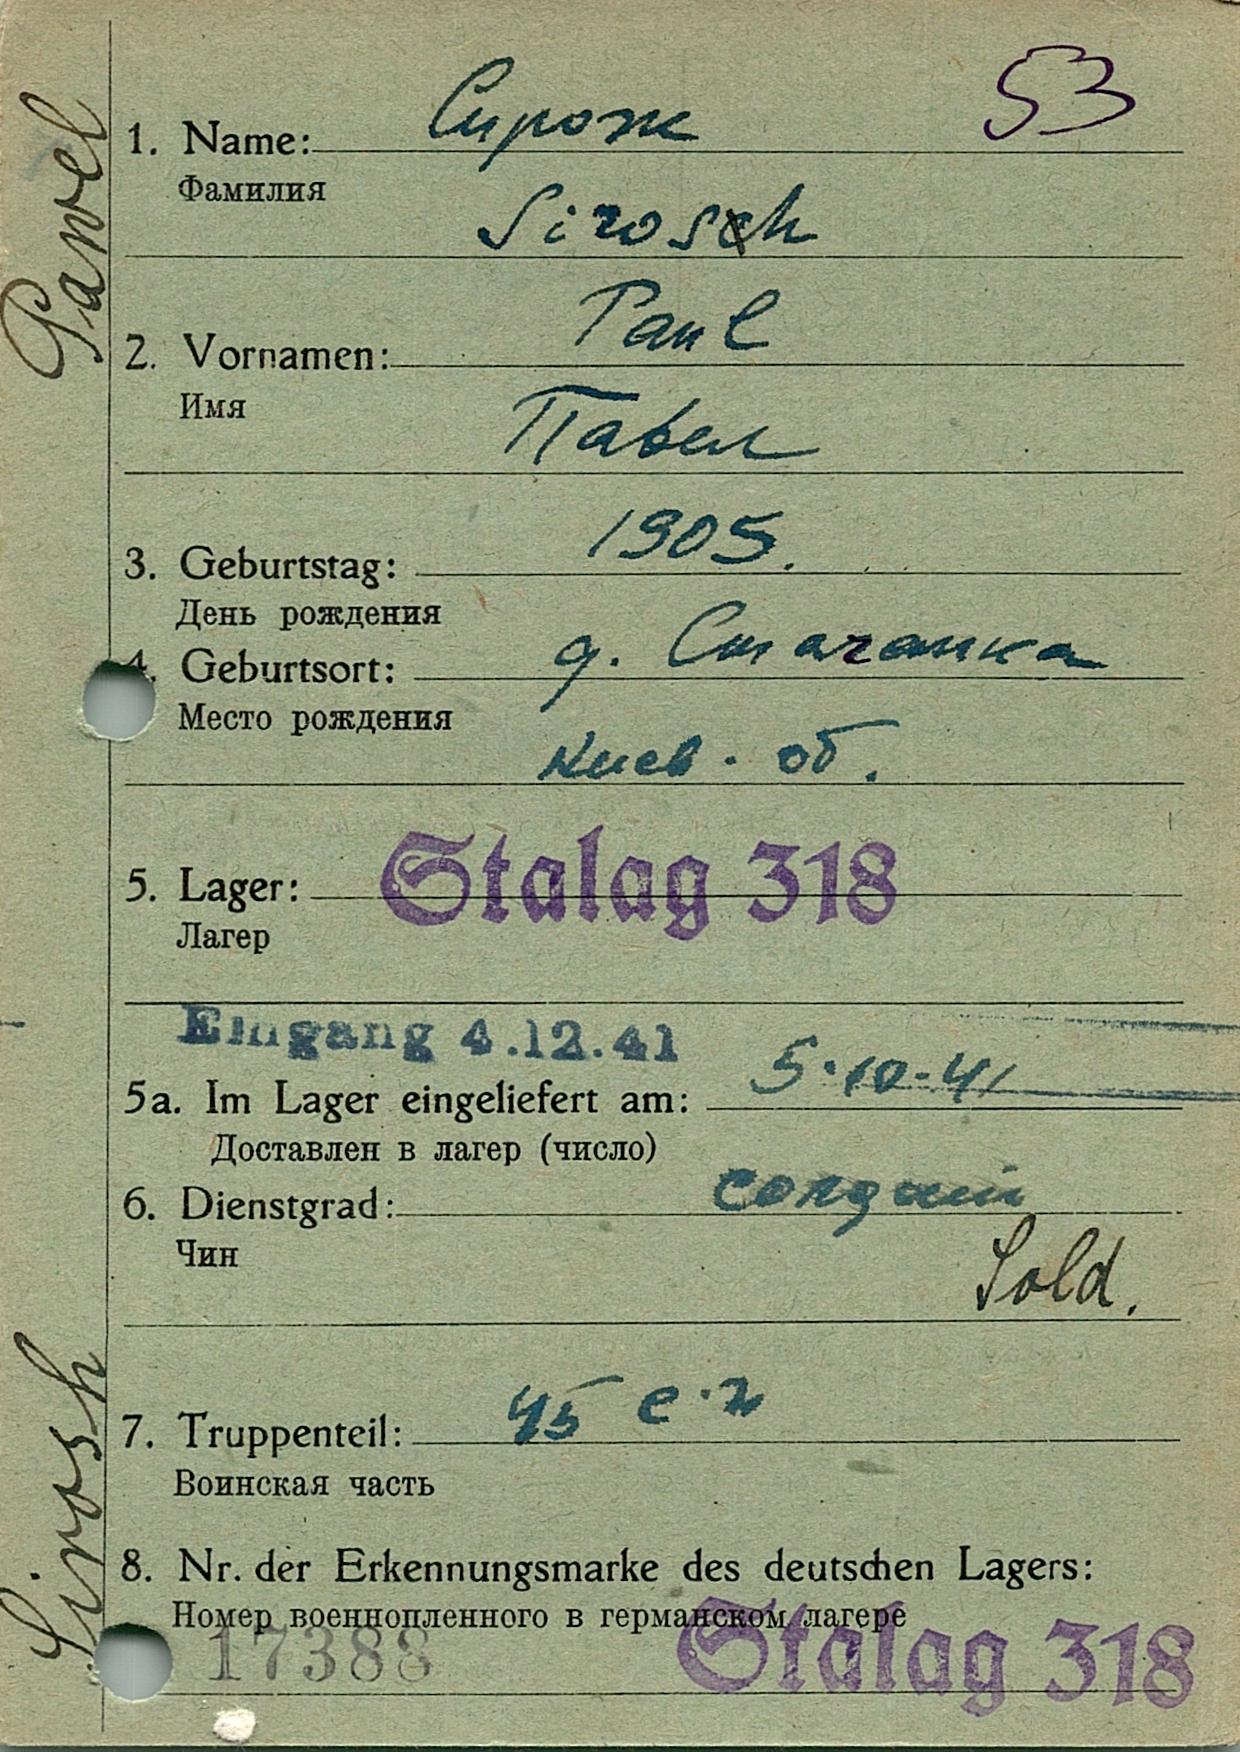 53
1. Name: Сирож
Фамилия
Sirosch
Paul
2. Vornamen:
Имя
Павел
1905.
3. Geburtstag:
День рождения
4. Geburtsort: д.
Место рождения
Киев. об.
5. Lager: Stalag 318
Лагер
Eingang 4.12.41
5a. Im Lager eingeliefert am: 5.10.41
Доставлен в лагер (число)
6. Dienstgrad: солдат
Чин
Sold.
7. Truppenteil: 45 с.п
Воинская часть
8. Nr. der Erkennungsmarke des deutschen Lagers:
Номер военнопленного в германском лагере
17388 Stalag 318
Sirosh Pawel